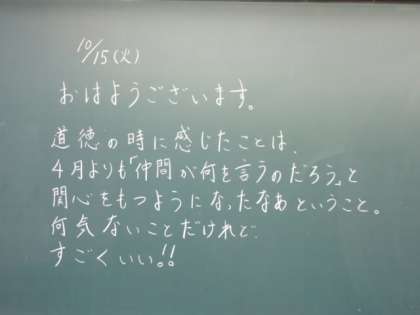 10/15(火)
おはようございます。
道徳の時に感じたことは、
4月よりも「仲間が何を言うのだろう」と
関心をもつようになったなあということ。
何気ないことだけれど、
すごくいい!!